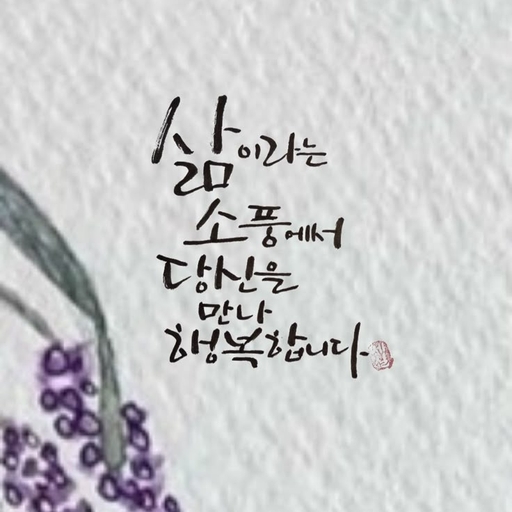 삶이라는
소풍에서
당신을
만나
행복합니다.